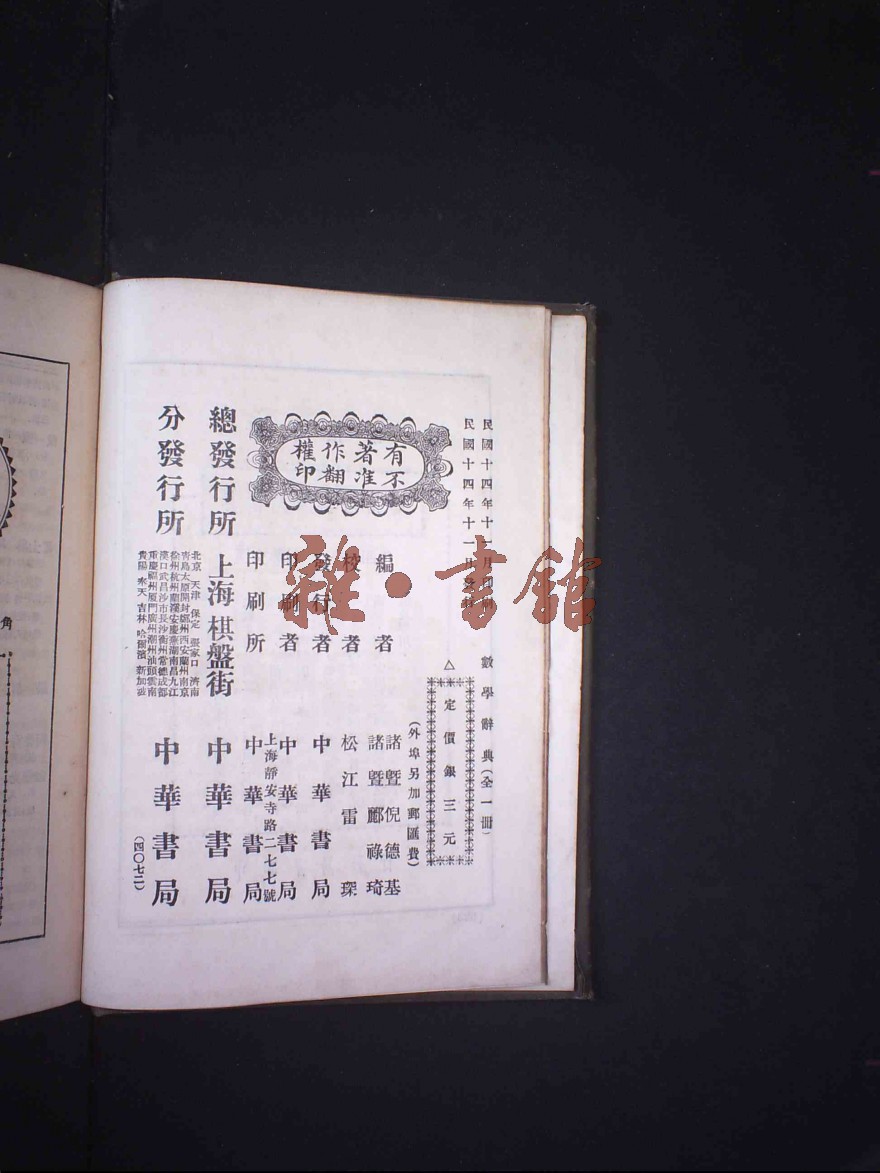 民國十四年十一月印刷
民國十四年十一月發行
數學辭典(全一冊)
△定價銀三元
(外埠另加郵匯費)
有著作權
不准翻印
編者 諸暨倪德基
諸暨酈祿琦
校者 松江雷琛
發行者 中華書局
印刷者 中華書局
上海靜安寺路二七七號
印刷所 中華書局
總發行所 上海棋盤街 中華書局
分發行所
北京 天津 保定 張家口 濟南
青島太原開封鄭州西安蘭州南京
徐州杭州蘭谿安慶蕪湖南昌九江
漢口武昌沙市長沙衡州常德成都
重慶福州廈門廣州潮州汕頭雲南
貴陽 奉天 吉林 哈爾濱 新加坡
中華書局
(四〇七二)
角
雜·書館